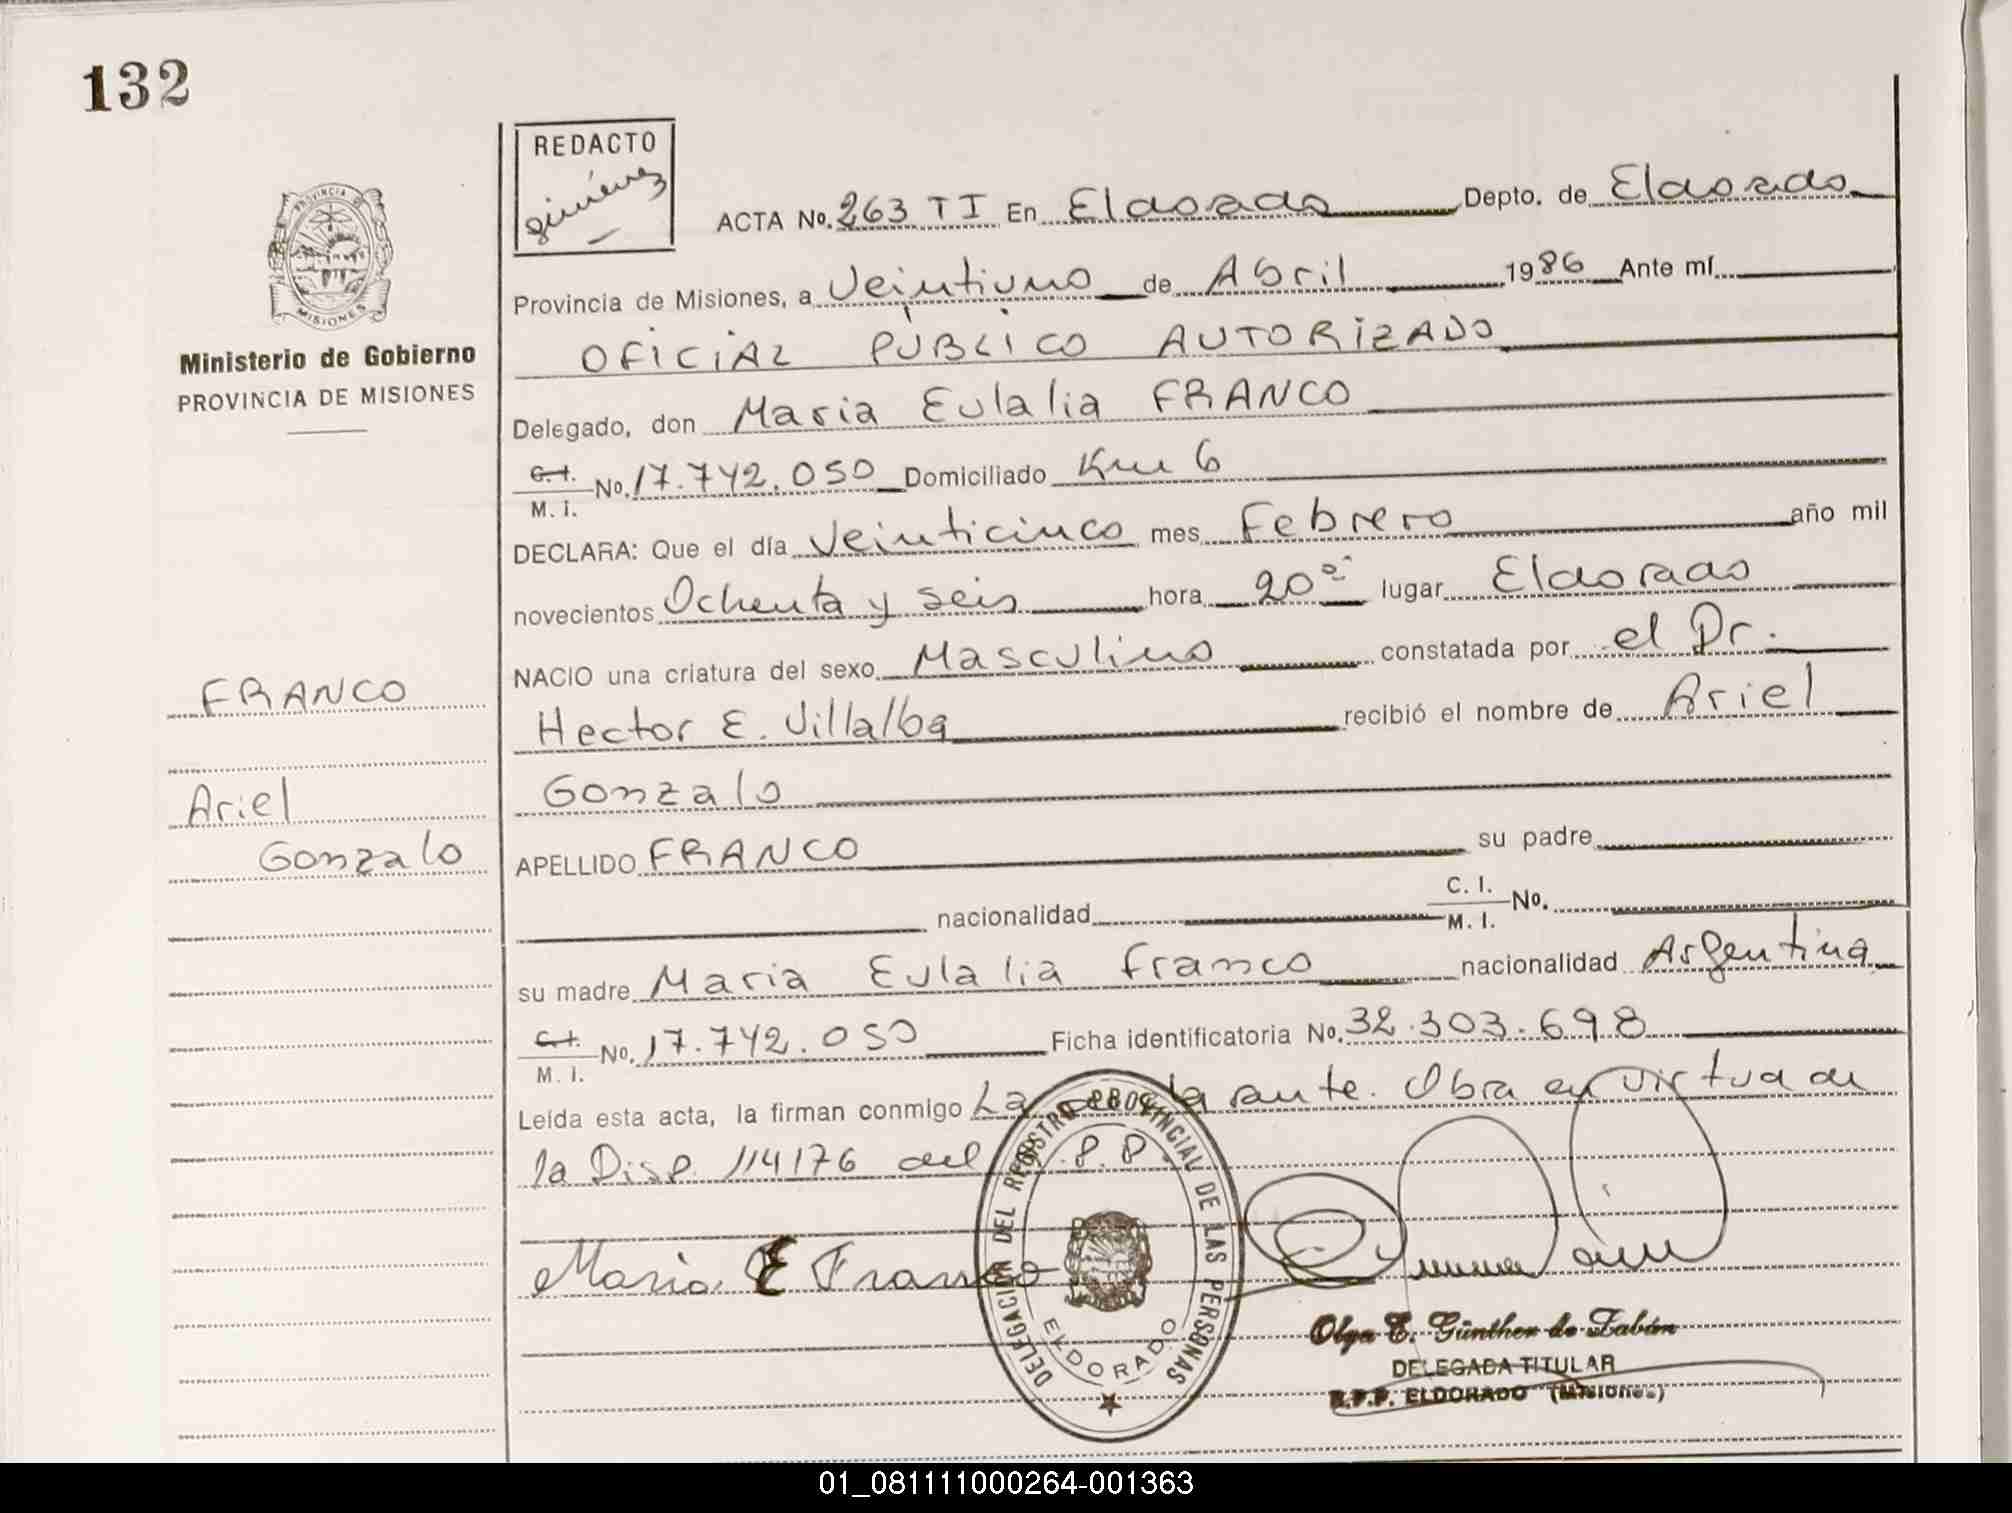 132
REDACTO
Giménez
PROVINCIA DE
MISIONES
Ministerio de Gobierno
PROVINCIA DE MISIONES
FRANCO
Ariel
Gonzalo
ACTA No. 263 TI En Eldorado Depto. de Eldorado
Provincia de Misiones, a Veintiuno de Abril 1986 Ante mí
OFICIAL PÚBLICO AUTORIZADO
Delegado, don Maria Eulalia FRANCO
C.I. M. I. No. 17.742.050 Domiciliado Km 6
DECLARA: Que el día Veinticinco mes Febrero año mil
novecientos Ochenta y seis hora 20 lugar Eldorado
NACIO una criatura del sexo Masculino constatada por el Dr.
Hector E. Villalba recibió el nombre de Ariel
Gonzalo
APELLIDO FRANCO su padre
nacionalidad C. I. M. I. No.
su madre Maria Eulalia Franco nacionalidad Argentina
C.I. M. I. No. 17.742.050 Ficha identificatoria No. 32.303.698
Leída esta acta, la firman conmigo La Obra en virtud de
la Disp. 114176 del 8.8.
Maria E Franco
DELEGACION DEL REGISTRO PROVINCIAL DE LAS PERSONAS
ELDORADO
Olga E. Günther de Zabán
DELEGADA TITULAR
R.P.P. ELDORADO (Misiones)
01_081111000264-001363